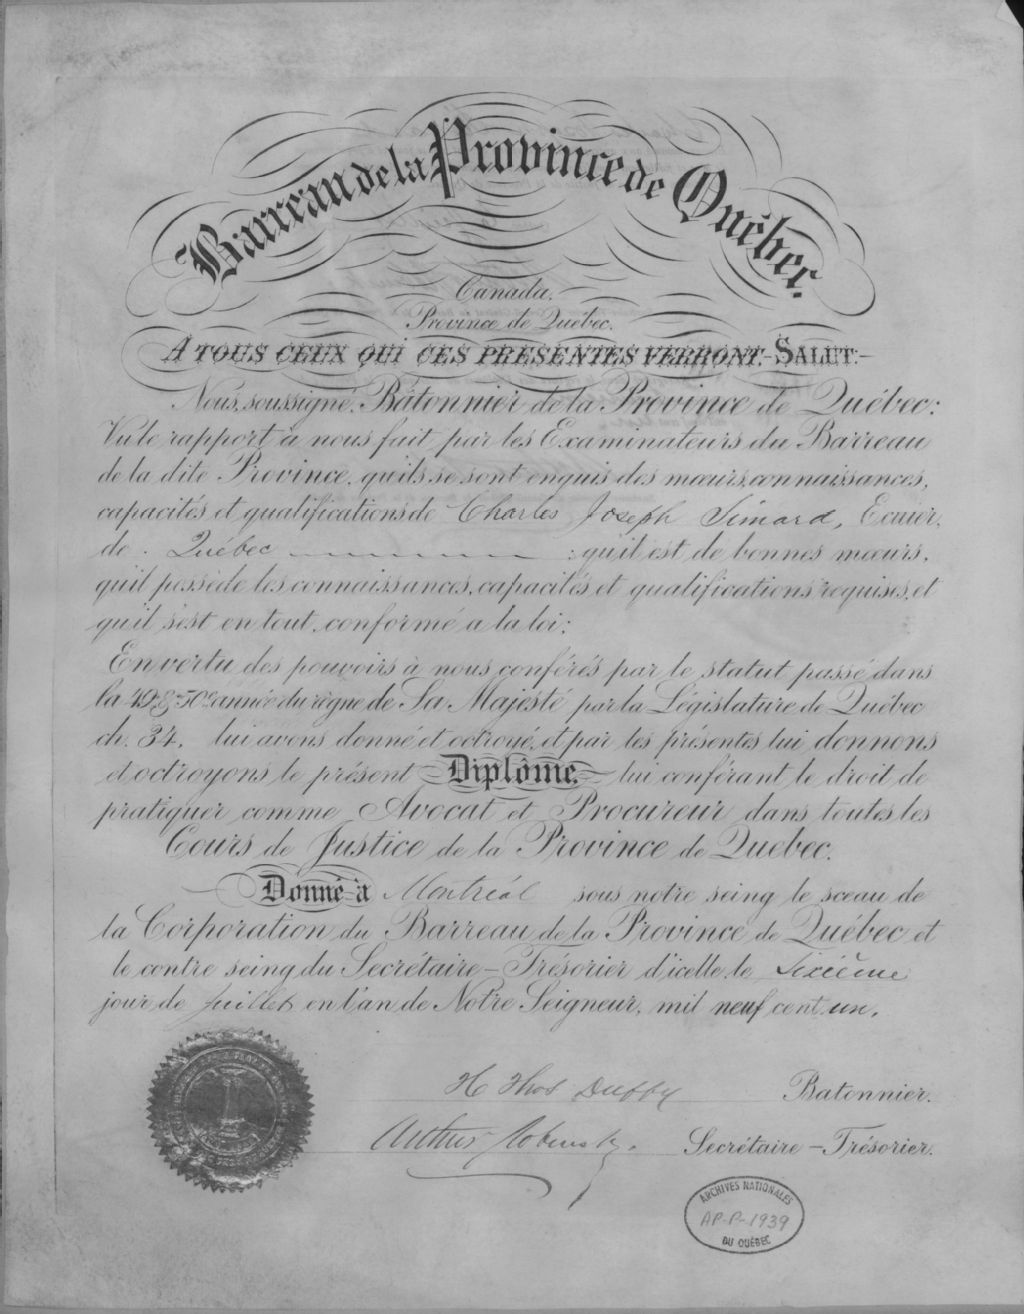 Barreau de la Province de Québec.
Canada.
Province de Québec.
A TOUS CEUX QUI CES PRESENTES VERRONT,-SALUT:-
Nous, soussigné, Bâtonnier de la Province de Québec:
Vu le rapport à nous fait par les Examinateurs du Barreau
de la dite Province, qu'ils se sont enquis des mœurs, connaissances,
capacités et qualifications de Charles Joseph Simard, Ecuier,
de Québec : qu'il est de bonnes mœurs,
qu'il possède les connaissances, capacités et qualifications requises, et
qu'il s'est en tout, conformé a la loi;
En vertu des pouvoirs à nous conférés par le statut passé dans
la 49 & 50e année du règne de Sa Majesté par la Législature de Québec
ch. 34, lui avons donné et octroyé, et par les présentes lui donnons
et octroyons le présent Diplôme, lui conférant le droit de
pratiquer comme Avocat et Procureur dans toutes les
Cours de Justice de la Province de Quebec.
Donné à Montréal sous notre seing le sceau de
la Corporation du Barreau de la Province de Québec et
le contre seing du Secrétaire-Trésorier d'icelle, le Sixième
jour de Juillet en l'an de Notre Seigneur, mil neuf cent un.
H Thos Duffy Batonnier.
Arthur Secrétaire-Trésorier.
ARCHIVES NATIONALES
AP-P-1939
DU QUÉBEC